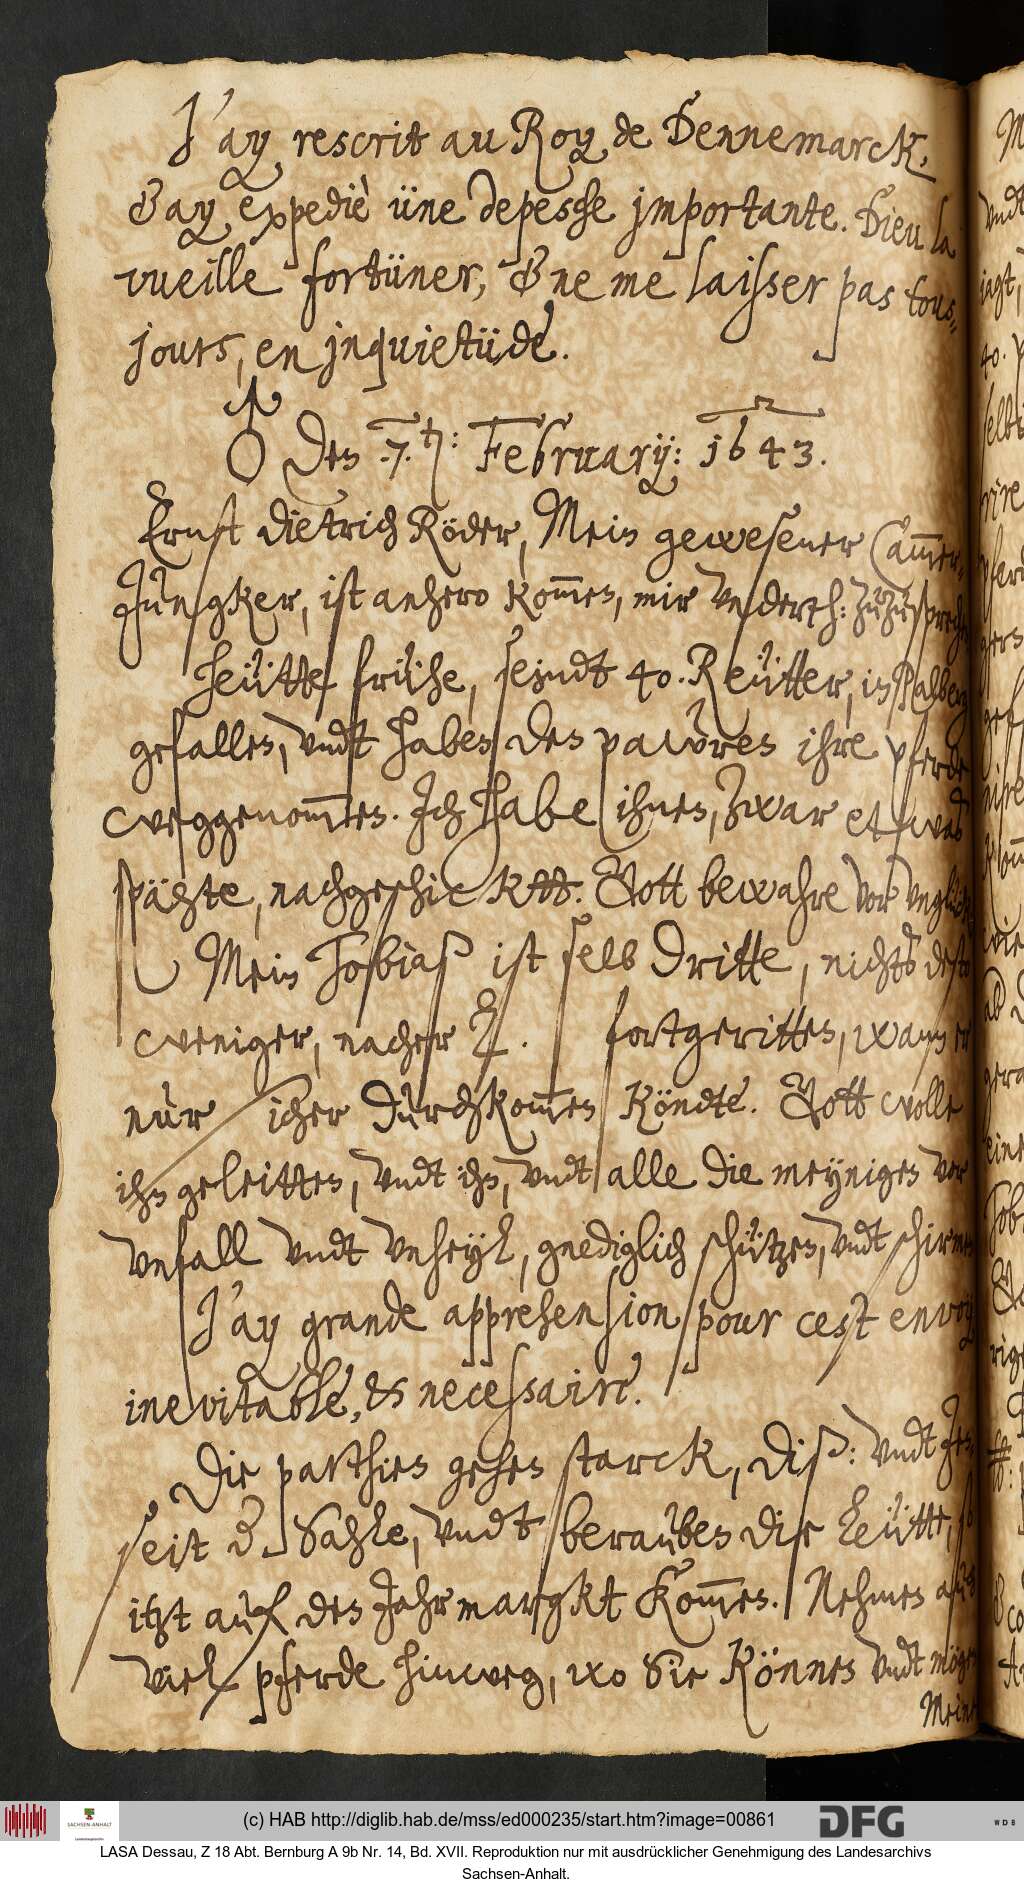 J'ay rescrit au Roy de Dennemarck,
& ay expediè üne depesche jmportante. Dieu la
vueille fortüner, & ne me laisser pas tous-
jours, en jnquietüde.
♂ den 7. ten: February: 1643.
Ernst Dietrich Röder, Mein gewesener Cam̄er-
Jungker, ist anhero kom̄en, mir vnderth: zuzusprechen
Heütte frühe, seindt 40. Reütter, in Palberg
gefallen, vndt haben den pauvres ihre pferde
weggenom̄en. Jch habe ihnen, zwar etwaß
spähte, nachgeschickett. Gott bewahre vor vnglück.
Mein Tobiaß ist selb Dritte, nichts desto
weniger, nacher . fortgeritten, wann er
nur sicher durchkom̄en köndte. Gott wolle
ihn geleitten, vndt ihn, vndt alle die meynigen vor
vnfall vndt vnheyl, gnediglich schützen, vndt schirmen
J'ay grande apprehension pour cest envoy
inevitable, & necessaire.
Die parthien gehen starck, diß: vndt Jen-
seit der Sahle, vndt berauben die Leütte, so
itzt auf den Jahrmargkt kom̄en. Nehmen auch
viel pferde hinweg, wo Sie können vndt mögen
Meine
(c) HAB http://diglib.hab.de/mss/ed000235/start.htm?image=00861
SACHSEN-ANHALT
DFG
WDB
LASA Dessau, Z 18 Abt. Bernburg A 9b Nr. 14, Bd. XVII. Reproduktion nur mit ausdrücklicher Genehmigung des Landesarchivs
Sachsen-Anhalt.